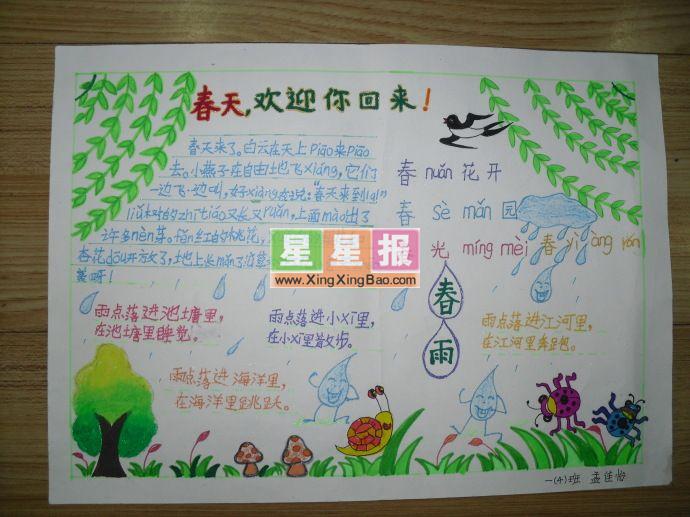 春天,欢迎你回来!
春天来了。白云在天上piāo来piāo
去。小燕子在自由地飞xiáng,它们
一边飞一边叫,好xiàng在说:“春天来到la!”
liǔ树的zhī tiáo又长又ruǎn,上面mào出了
许多nèn芽。fěn红的桃花,
杏花dōu开放了,土地上长mǎn了
美呀!
春nuǎn花开
春sè mǎn园
春光míng mèi
春yì àng rán
星星报
www.XingXingBao.com
春雨
雨点落进池塘里,
在池塘里睡觉。
雨点落进小xī里,
在小xī里散步。
雨点落进江河里,
在江河里奔跑。
雨点落进海洋里,
在海洋里跳跃。
一(4)班 孟佳怡